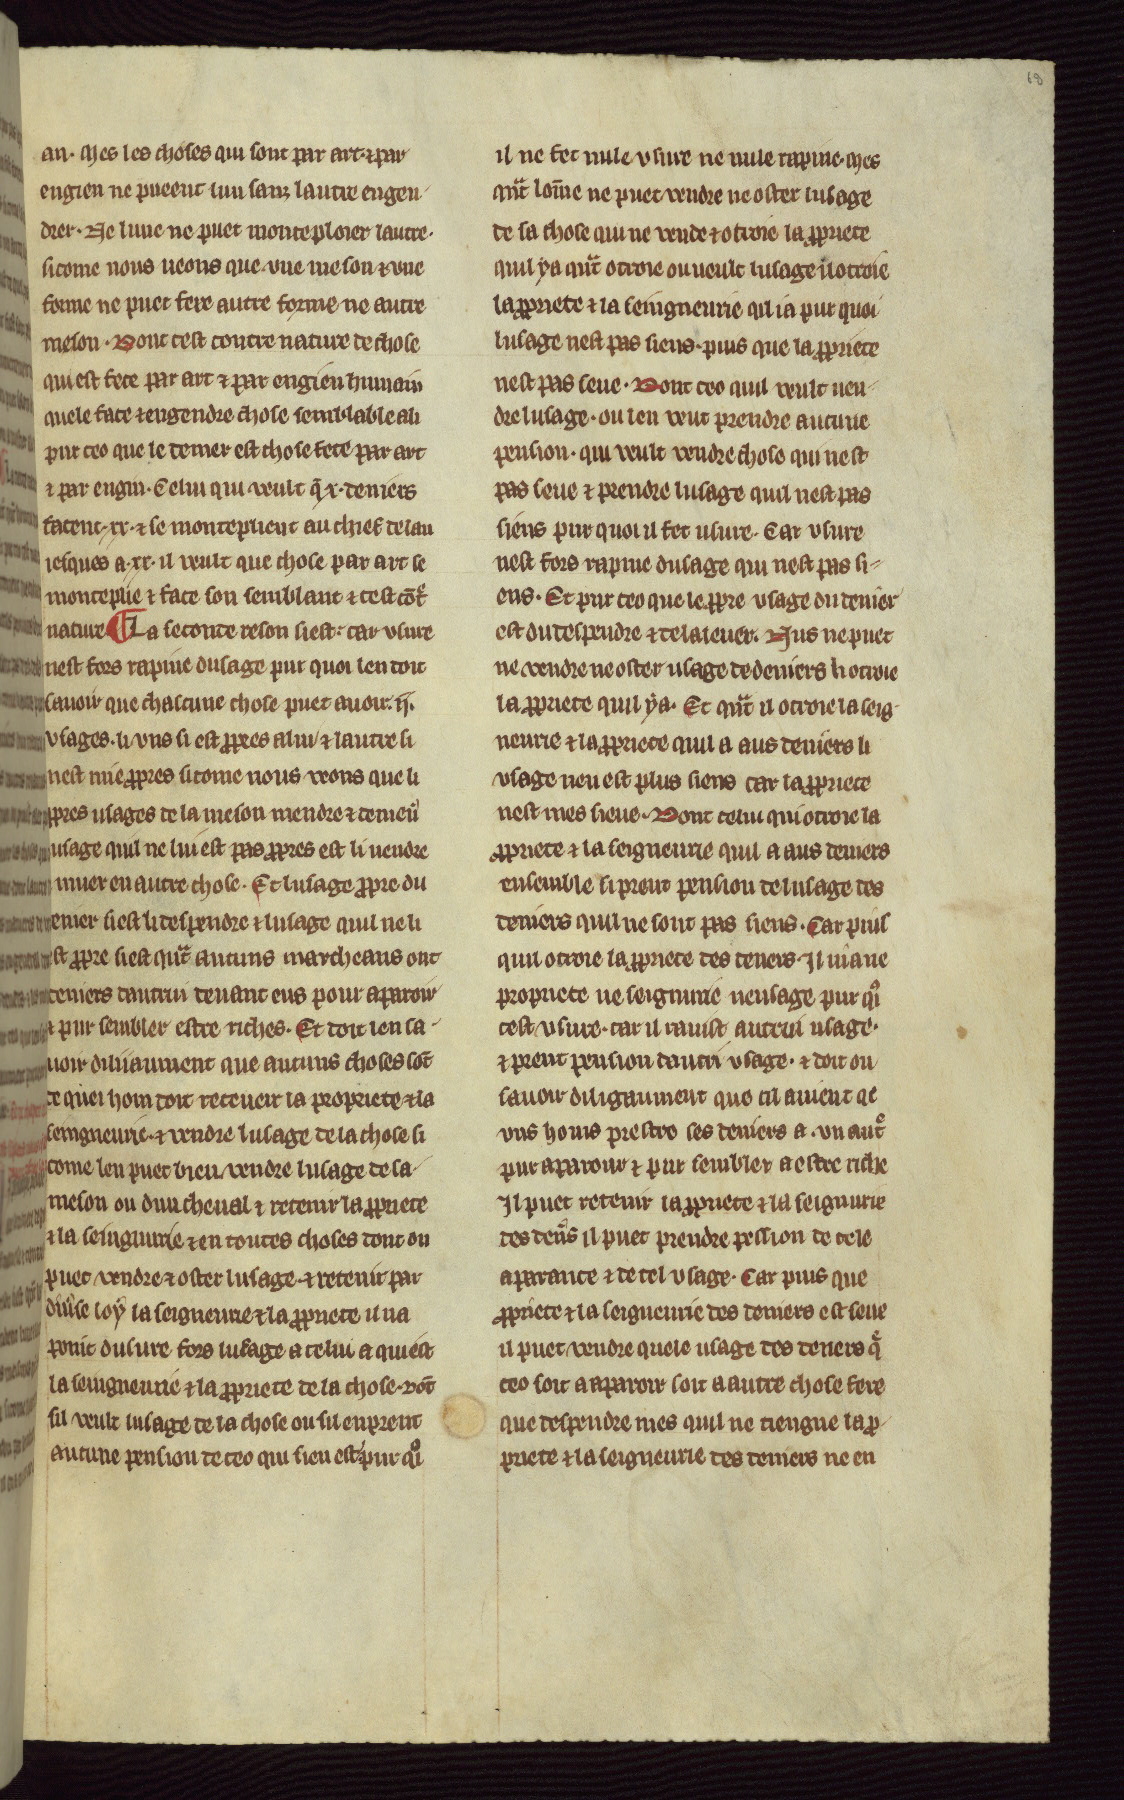 68
an. Mes les choses qui sont par art ⁊ par
engien ne pueent lun sanz lautre engen-
drer. Ne lune ne puet monteploier lautre.
sicome nous ueons que vne meson ⁊ vne
forme ne puet fere autre forme ne autre
meson. Dont cest contre nature de chose
qui est fete par art ⁊ par engien humain
quele face ⁊ engendre chose semblable a li
pur ceo que le denier est chose fete par art
⁊ par engin. Celui qui veult q̄ .x. deniers
facent .xx. ⁊ se monteplient au chief de lan
iesques a .xx. il veult que chose par art se
monteplie ⁊ face son semblant ⁊ cest cōt̄
nature La seconde reson si est. car vsure
nest fors rapine dusage pur quoi len doit
sauoir que chascune chose puet auoir .ii.
vsages. li vns si est ꝓpres a lui ⁊ lautre si
nest mie ꝓpres sicome nous veons que li
ꝓpres usages de la meson mendre ⁊ demeu᷑
usage quil ne lui est pas ꝓpres est li uendre
muer en autre chose. Et lusage ꝓpre du
enier si est li despendre ⁊ lusage quil ne li
st ꝓpre si est qūt aucuns marcheans ont
deniers dautrui deuant eus pour aparoir
⁊ pur sembler estre riches. Et doit len sa-
uoir diliiaument que aucuns choses sōt
de quei hom doit receueir la propriete ⁊ la
seingneurie. ⁊ vendre lusage de la chose si
come len puet bien vendre lusage de sa
meson ou dun cheual ⁊ retenir la ꝓpriete
⁊ la seingnurie ⁊ en toutes choses dont on
puet vendre ⁊ oster lusage ⁊ retenir par
diu᷑se loy la seigneurie ⁊ la ꝓpriete il na
point dusure fors lusage a celui a qui est
la seingneurie ⁊ la ꝓpriete de la chose. dōt
sil veult lusage de la chose ou sil en prent
aucune pension de ceo qui sien est pur qͦi
il ne fet nule vsure ne nule rapine. Mes
qūt lom̄e ne puet vendre ne oster lusage
de sa chose qui ne vende ⁊ otroie la ꝓpriete
quil ya qūt otroie ou ueult lusage il otroie
la ꝓpriete ⁊ la seingneurie qil ia pur quoi
lusage nest pas siens. puis que la ꝓpriete
nest pas seue. Dont ceo quil veult uen-
dre lusage. ou len veut prendre aucune
pension. qui veult vendre chose qui nest
pas seue ⁊ prendre lusage quil nest pas
siens pur quoi il fet usure. Car vsure
nest fors rapine dusage qui nest pas si-
ens. Et pur ceo que le ꝓpre vsage du denier
est du despendre ⁊ de laleuer. Nus ne puet
ne vendre ne oster usage de deniers li otroie
la ꝓpriete quil ya. Et qūt il otroie la seig-
neurie ⁊ la ꝓpriete quil a aus deniers li
vsage nen est plus siens car la ꝓpriete
nest mes sieue. Dont celui qui otroie la
ꝓpriete ⁊ la seigneurie quil a aus deniers
ensemble si prent pension de lusage des
deniers quil ne sont pas siens. Car puis
quil otroie la ꝓpriete des deners. Il ni ane
propriete ne seignurie neusage pur qͦi
cest vsure. car il rauist autrui usage.
⁊ prent pension dautri vsage. ⁊ doit on
sauoir diligaument que cil auient qe
vns homs prestre ses deniers a .vn aut᷑
pur aparoir ⁊ pur sembler a estre riche
Il puet retenir la ꝓpriete ⁊ la seignurie
des den᷑s il puet prendre pession de cele
aparance ⁊ de tel vsage. Car puis que
ꝓpriete ⁊ la seigneurie des deniers est seue
il puet vendre quele usage des deners q̄
ceo soit a aparoir soit a autre chose fere
que despendre mes quil ne tiengne la ꝓ-
priete ⁊ la seigneurie des deniers ne en